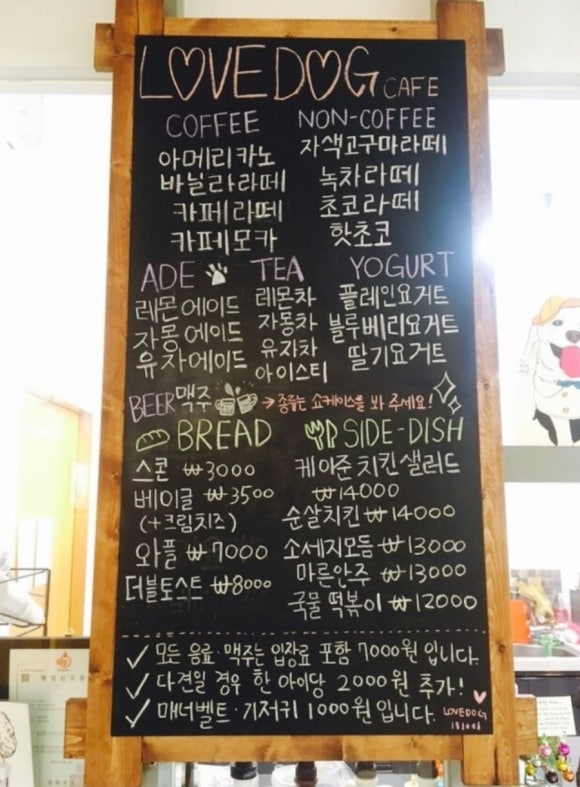 LOVEDOG CAFE
COFFEE
아메리카노
바닐라라떼
카페라떼
카페모카
NON-COFFEE
자색고구마라떼
녹차라떼
초코라떼
핫초코
ADE
레몬에이드
자몽에이드
유자에이드
TEA
레몬차
자몽차
유자차
아이스티
YOGURT
플레인요거트
블루베리요거트
딸기요거트
BEER 맥주 → 종류는 쇼케이스를 봐 주세요!
BREAD
스콘 ₩3000
베이글 ₩3500
(+크림치즈)
와플 ₩7000
더블토스트 ₩8000
SIDE-DISH
케이준 치킨 샐러드
₩14000
순살치킨 ₩14000
소세지모듬 ₩13000
마른안주 ₩13000
국물 떡볶이 ₩12000
✓ 모든 음료·맥주는 입장료 포함 7000원 입니다.
✓ 다견일 경우 한 아이당 2000원 추가!
✓ 매너벨트·기저귀 1000원 입니다.
LOVEDOG